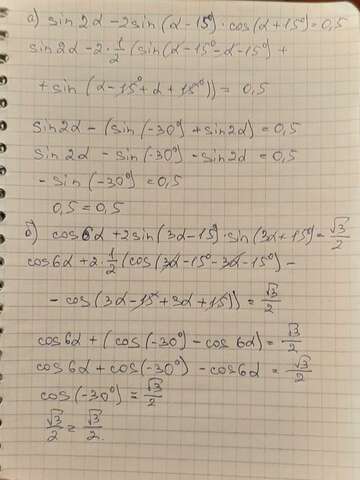 а) sin2α-2sin(α-15°)·cos(α+15°)=0,5
sin2α-2·1/2(sin(α-15°-α-15°)+
+sin(α-15°+α+15°))=0,5
sin2α-(sin(-30°)+sin2α)=0,5
sin2α-sin(-30°)-sin2α=0,5
-sin(-30°)=0,5
0,5=0,5
б) cos6α+2sin(3α-15°)·sin(3α+15°)=√3/2
cos6α+2·1/2(cos(3α-15°-3α-15°)-
-cos(3α-15°+3α+15°))=√3/2
cos6α+(cos(-30°)-cos6α)=√3/2
cos6α+cos(-30°)-cos6α=√3/2
cos(-30°)=√3/2
√3/2=√3/2.